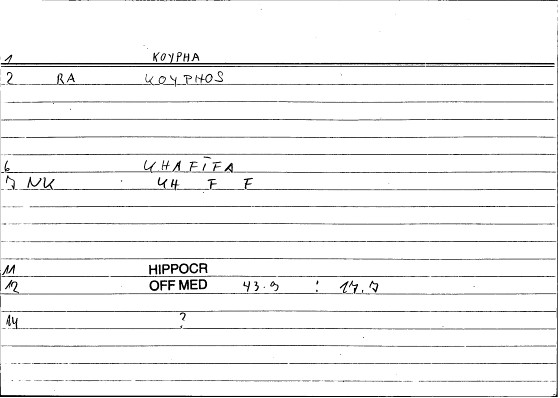 1 KOYPHA
2 RA KOYPHOS
6 KHAFĪFA
7 NK KH F F
11 HIPPOCR
12 OFF MED 43.9 : 17.7
14 ?